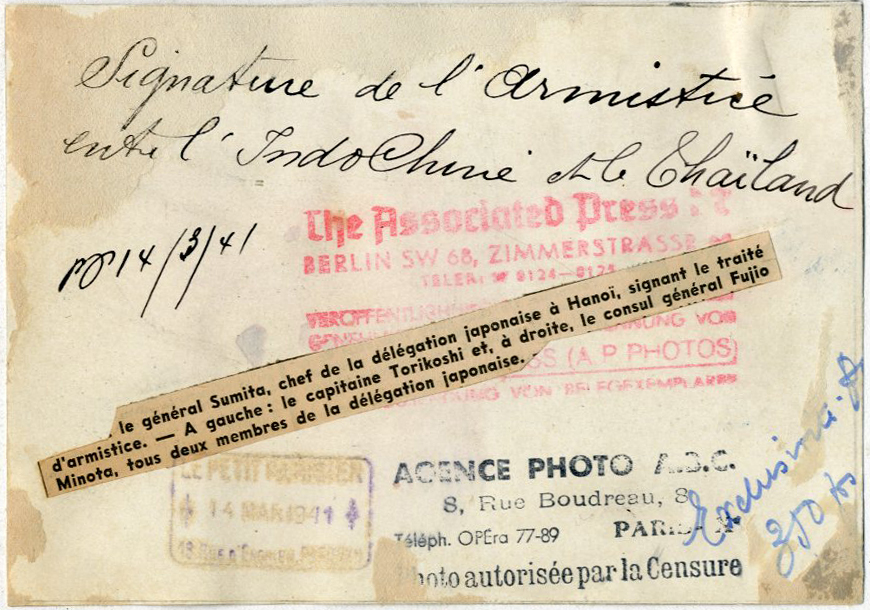 Signature de l'Armistice
entre l'IndoChine et le Thaïland
14/3/41
The Associated Press
BERLIN SW 68, ZIMMERSTRASSE
VERÖFFENTLICHUNG
VON
SS (A P PHOTOS)
VON BELEGEXEMPLAREN
le général Sumita, chef de la délégation japonaise à Hanoï, signant le traité
d'armistice. — A gauche : le capitaine Torikoshi et, à droite, le consul général Fujio
Minota, tous deux membres de la délégation japonaise.
LE PETIT PARISIEN
14 MAR 1941
AGENCE PHOTO A.B.C.
8, Rue Boudreau, 8
Téléph. OPÉra 77-89 PARIS
Photo autorisée par la Censure
350